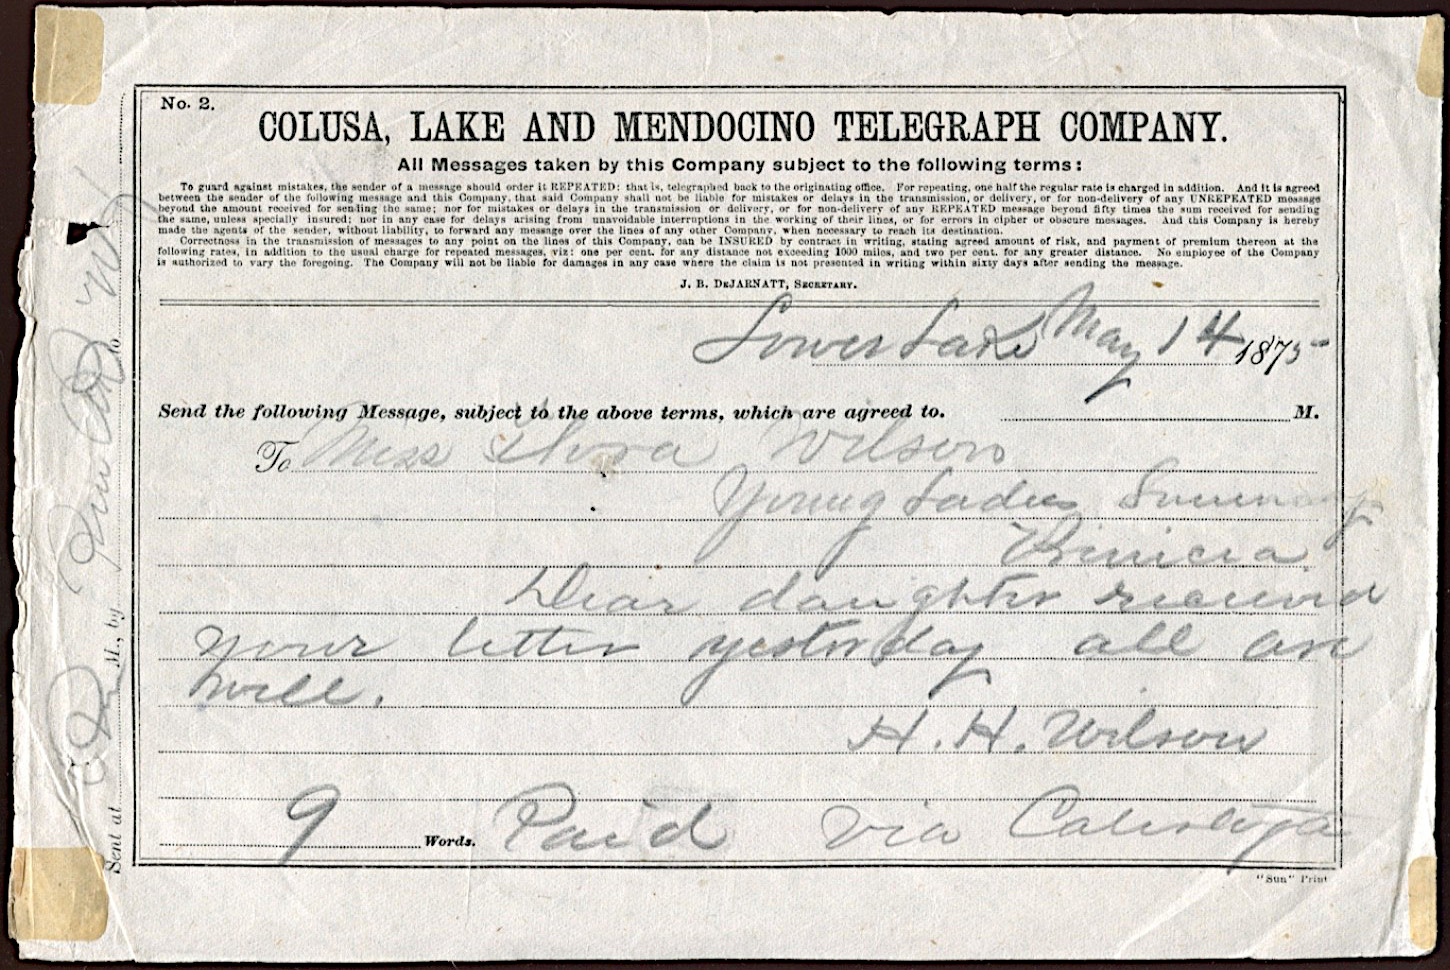 No. 2.
COLUSA, LAKE AND MENDOCINO TELEGRAPH COMPANY.
All Messages taken by this Company subject to the following terms:
To guard against mistakes, the sender of a message should order it REPEATED: that is, telegraphed back to the originating office. For repeating, one half the regular rate is charged in addition. And it is agreed
between the sender of the following message and this Company, that said Company shall not be liable for mistakes or delays in the transmission, or delivery, or for non-delivery of any UNREPEATED message
beyond the amount received for sending the same; nor for mistakes or delays in the transmission or delivery, or for non-delivery of any REPEATED message beyond fifty times the sum received for sending
the same, unless specially insured; nor in any case for delays arising from unavoidable interruptions in the working of their lines, or for errors in cipher or obscure messages. And this Company is hereby
made the agents of the sender, without liability, to forward any message over the lines of any other Company, when necessary to reach its destination.
Correctness in the transmission of messages to any point on the lines of this Company, can be INSURED by contract in writing, stating agreed amount of risk, and payment of premium thereon at the
following rates, in addition to the usual charge for repeated messages, viz: one per cent. for any distance not exceeding 1000 miles, and two per cent. for any greater distance. No employee of the Company
is authorized to vary the foregoing. The Company will not be liable for damages in any case where the claim is not presented in writing within sixty days after sending the message.
J. B. DEJARNATT, SECRETARY.
Lower Lake May 14 1875
Send the following Message, subject to the above terms, which are agreed to. M.
To Miss Wilson
Young Ladies
Benicia
Dear daughter received
your letter yesterday all are
well.
H. H. Wilson
9 Words. Paid via Calistoga
"Sun" Print
Sent at M., by to